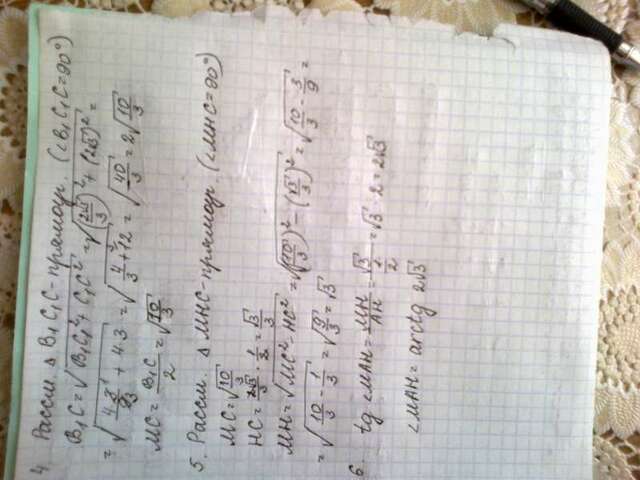 4. Рассм. △ B₁C₁C - прямоуг. (∠B₁C₁C=90°)
B₁C = √(B₁C₁² + C₁C²) = √((2√3/3)² + (2√3)²) =
= √(4·3/9 + 4·3) = √(4/3 + 12) = √(40/3) = 2√(10/3)
MC = B₁C/2 = √(10/3)
5. Рассм. △ MHC - прямоуг (∠MHC=90°)
MC = √(10/3)
HC = 2√3/3 · 1/2 = √3/3
MH = √(MC² - HC²) = √((√(10/3))² - (√3/3)²) = √(10/3 - 3/9) =
= √(10/3 - 1/3) = √(9/3) = √3
6. tg ∠MAH = MH/AH = √3/(1/2) = √3 · 2 = 2√3
∠MAH = arctg 2√3